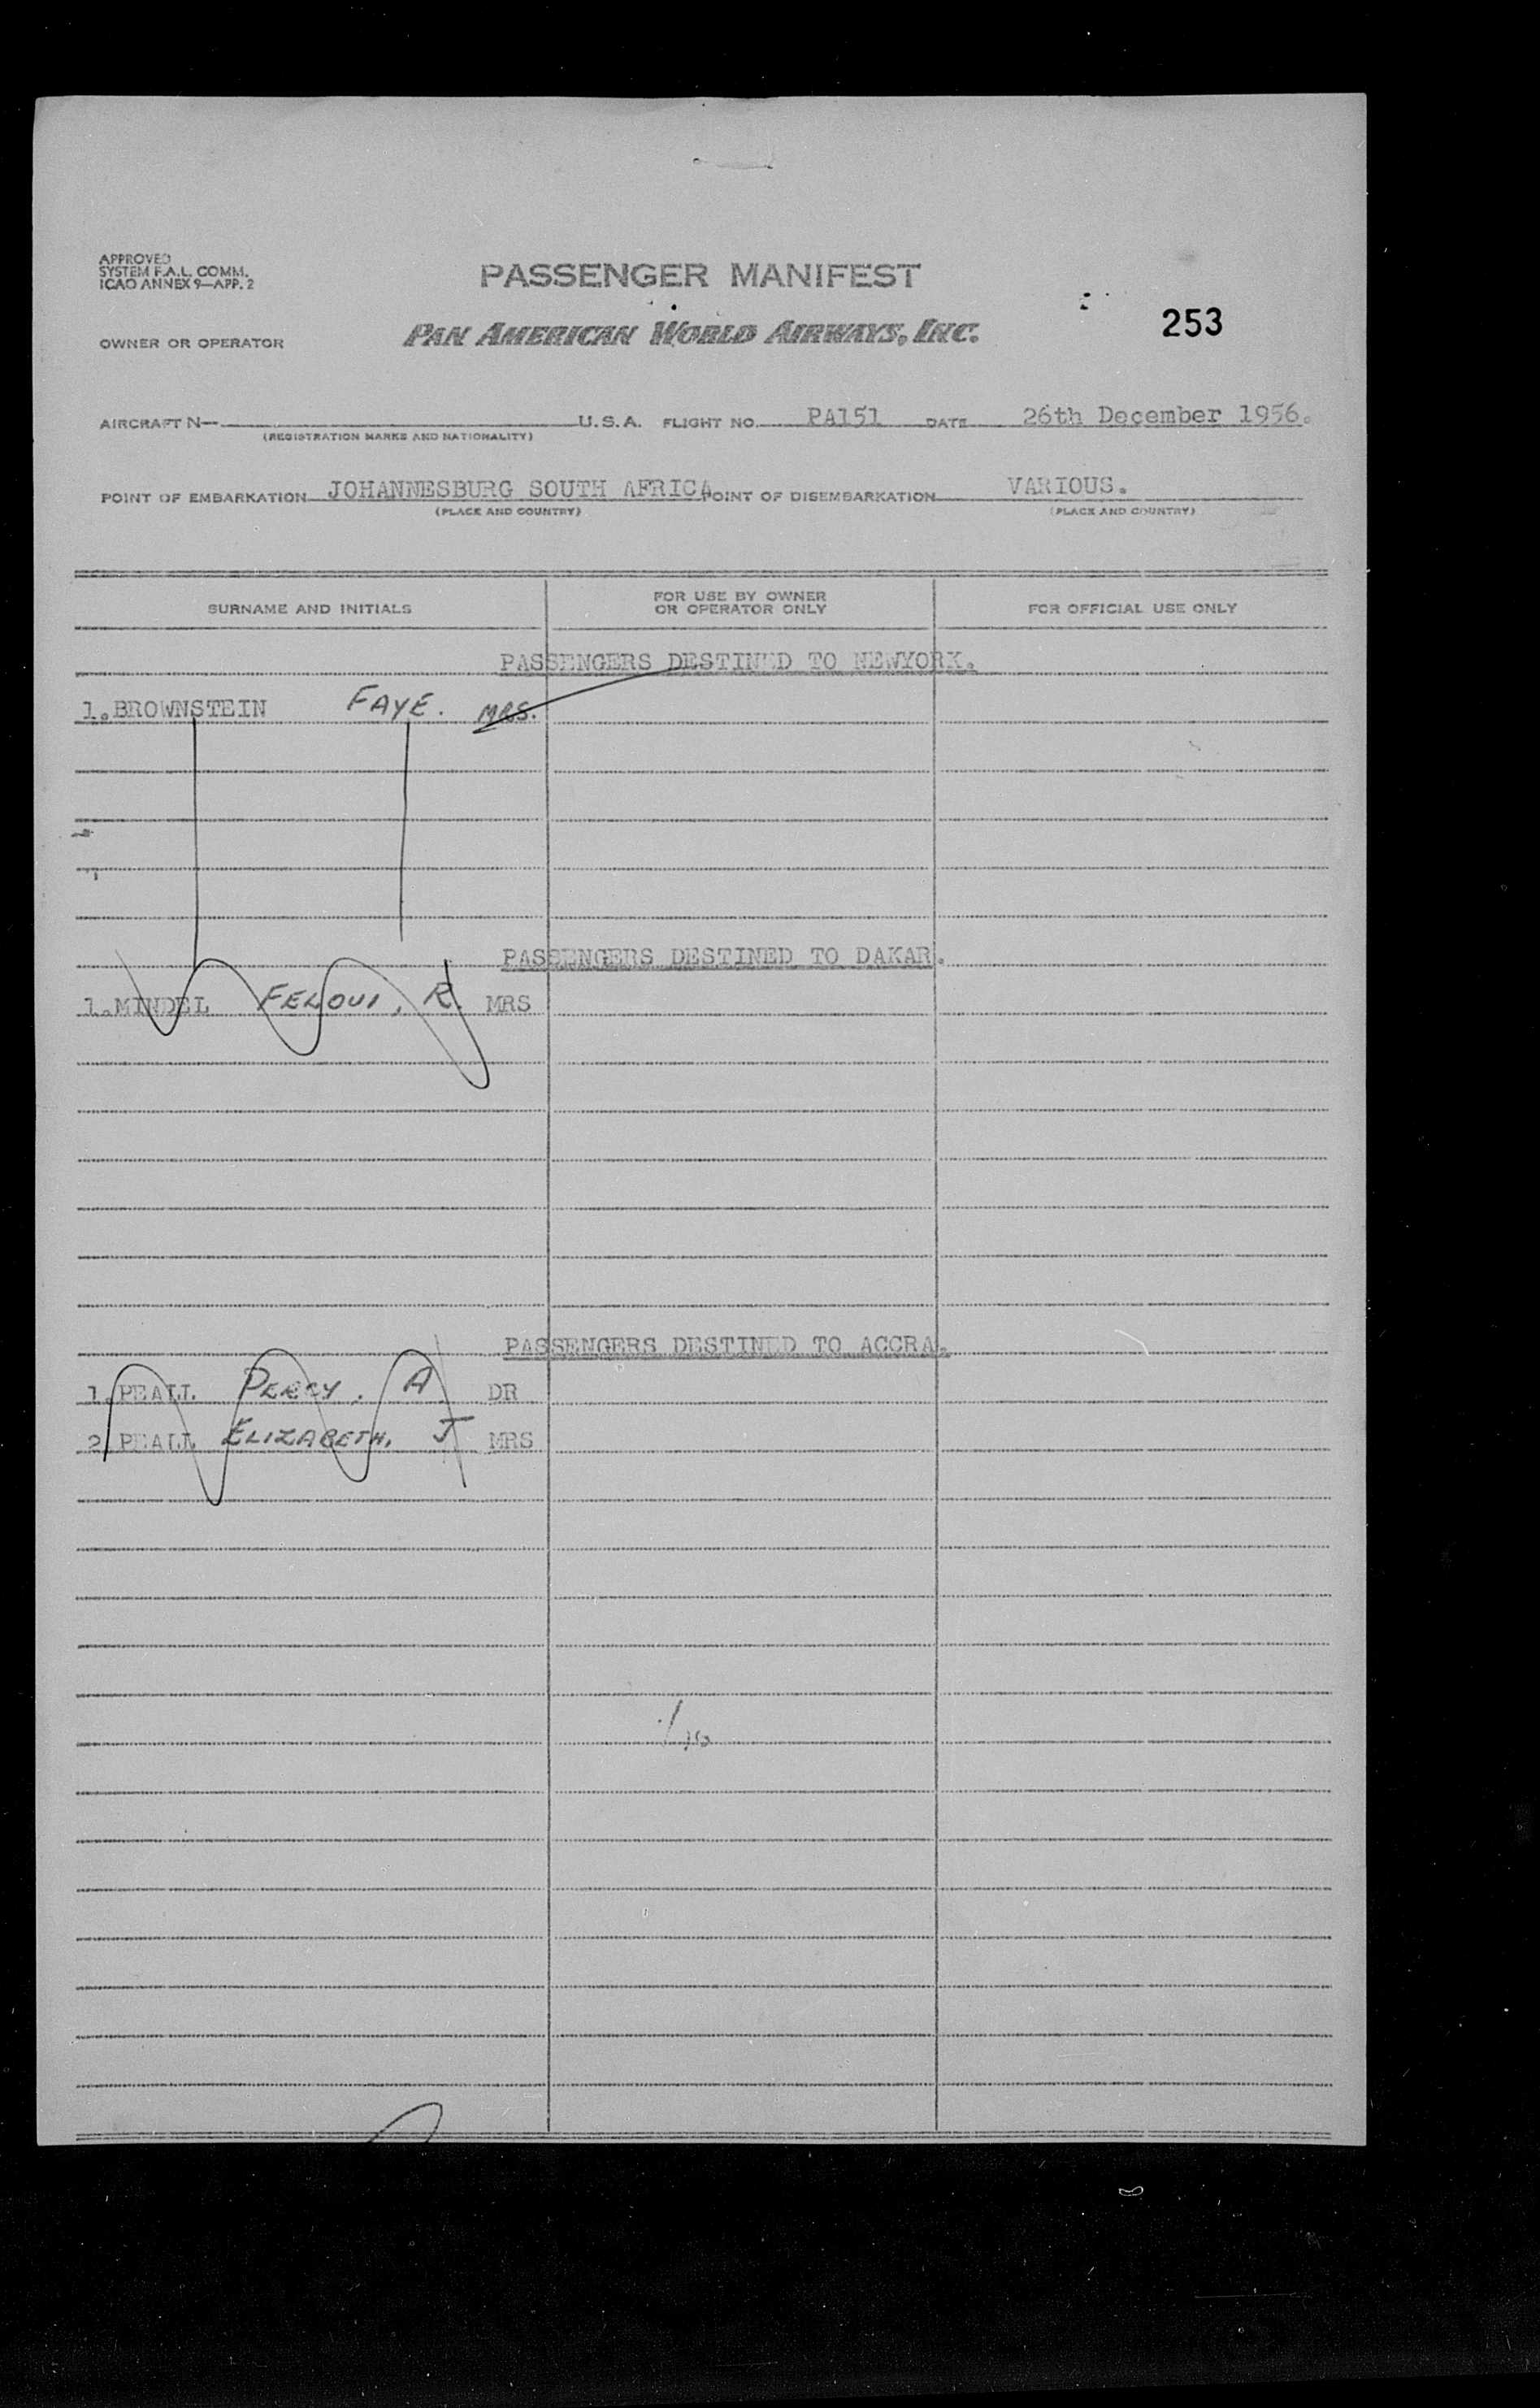 APPROVED
SYSTEM F.A.L. COMM.
ICAO ANNEX 9—APP. 2
PASSENGER MANIFEST
253
OWNER OR OPERATOR PAN AMERICAN WORLD AIRWAYS, INC.
AIRCRAFT N— U.S.A. FLIGHT NO. PA151 DATE 26th December 1956.
(REGISTRATION MARKS AND NATIONALITY)
POINT OF EMBARKATION JOHANNESBURG SOUTH AFRICA POINT OF DISEMBARKATION VARIOUS.
(PLACE AND COUNTRY) (PLACE AND COUNTRY)
SURNAME AND INITIALS FOR USE BY OWNER OR OPERATOR ONLY FOR OFFICIAL USE ONLY
PASSENGERS DESTINED TO NEWYORK.
1.BROWNSTEIN FAYE. MRS.
PASSENGERS DESTINED TO DAKAR.
1.MINDEL R. MRS
PASSENGERS DESTINED TO ACCRA.
1.PEALL PERCY. A DR
2.PEALL ELIZABETH. J MRS